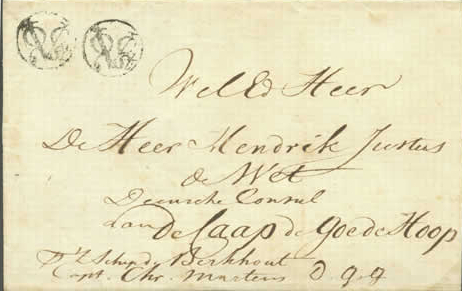 Wel Ed Heer
De Heer Hendrik Justus
de Wet
Deensche Consul
aan De Caap de Goede Hoop
Pr 't Schip de Berkhout
Capt. Chr. Martens D. G. G.